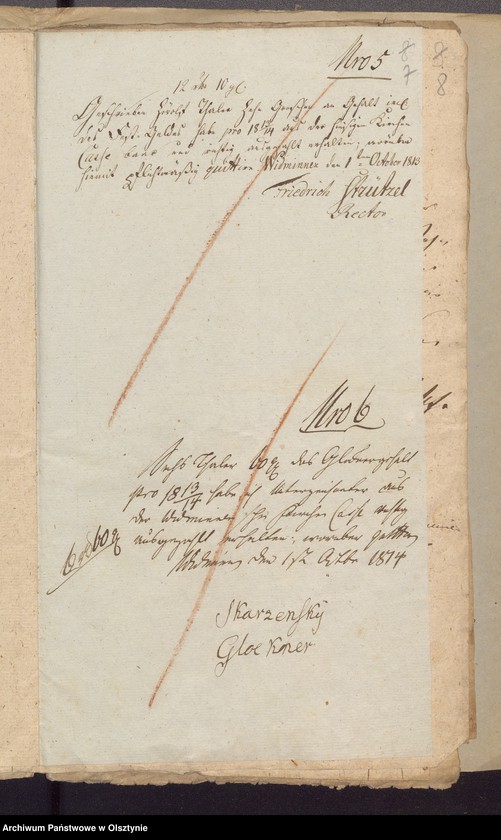 Nro 5
8
7
8
8
12 rh 10 gl.
Geschrieben Zwölf Thaler Zehn Groschen an Gehalt incl
des Holz Geldes habe pro 18 13/14 aus der hiesigen Kirchen
Casse baar und richtig ausgezahlt erhalten; worüber
hiemit pflichtmäßig quittire Widminnen den 1ten October 1813
Friedrich Strützel
Rector
Nro 6
Sechs Thaler 60 g das Glöknergehalt
pro 18 13/14 habe ich Unterzeichneter aus
der Widminnschen Kirchen Casse richtig
6 rh 60 g
ausgezahlt erhalten; worüber quittire
Widminnen den 1st. Octbr 1814
Skarzensky
Gloekner
Archiwum Państwowe w Olsztynie